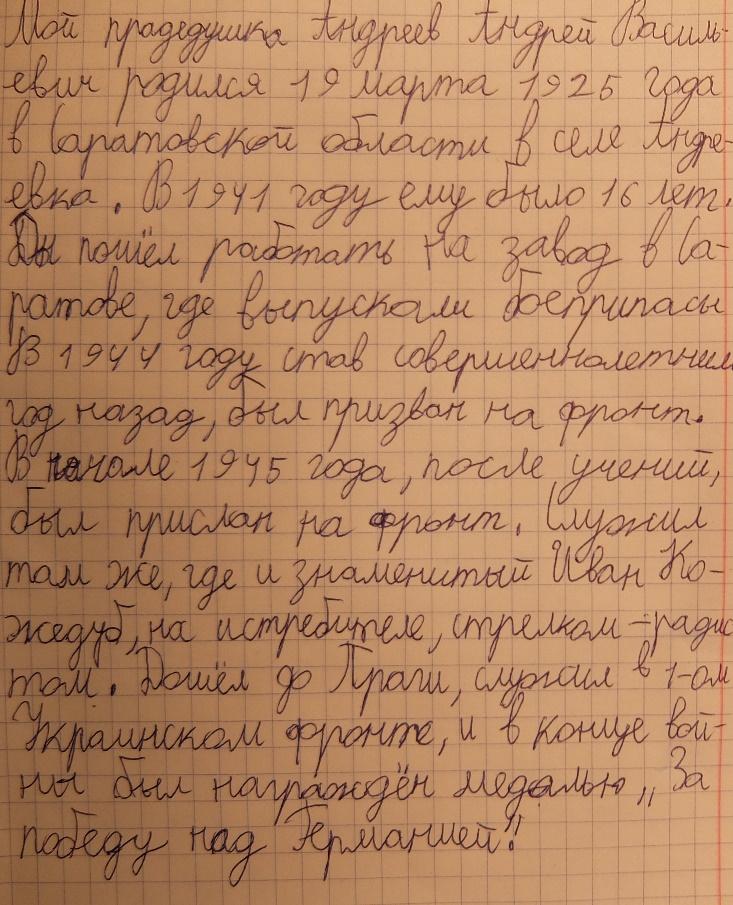 Мой прадедушка Андреев Андрей Василь-
евич родился 19 марта 1925 года
в Саратовской области в селе Андре-
евка. В 1941 году ему было 16 лет.
пошёл работать на завод в Са-
ратове, где выпускали боеприпасы
В 1944 году став совершеннолетним
год назад, был призван на фронт.
В начале 1945 года, после учений,
был прислан на фронт. Служил
там же, где и знаменитый Иван Ко-
жедуб, на истребителе, стрелком-радис
том. Дошёл до Праги, служил в 1-ом
Украинском фронте, и в конце вой-
ны был награждён медалью „За
победу над Германией“!